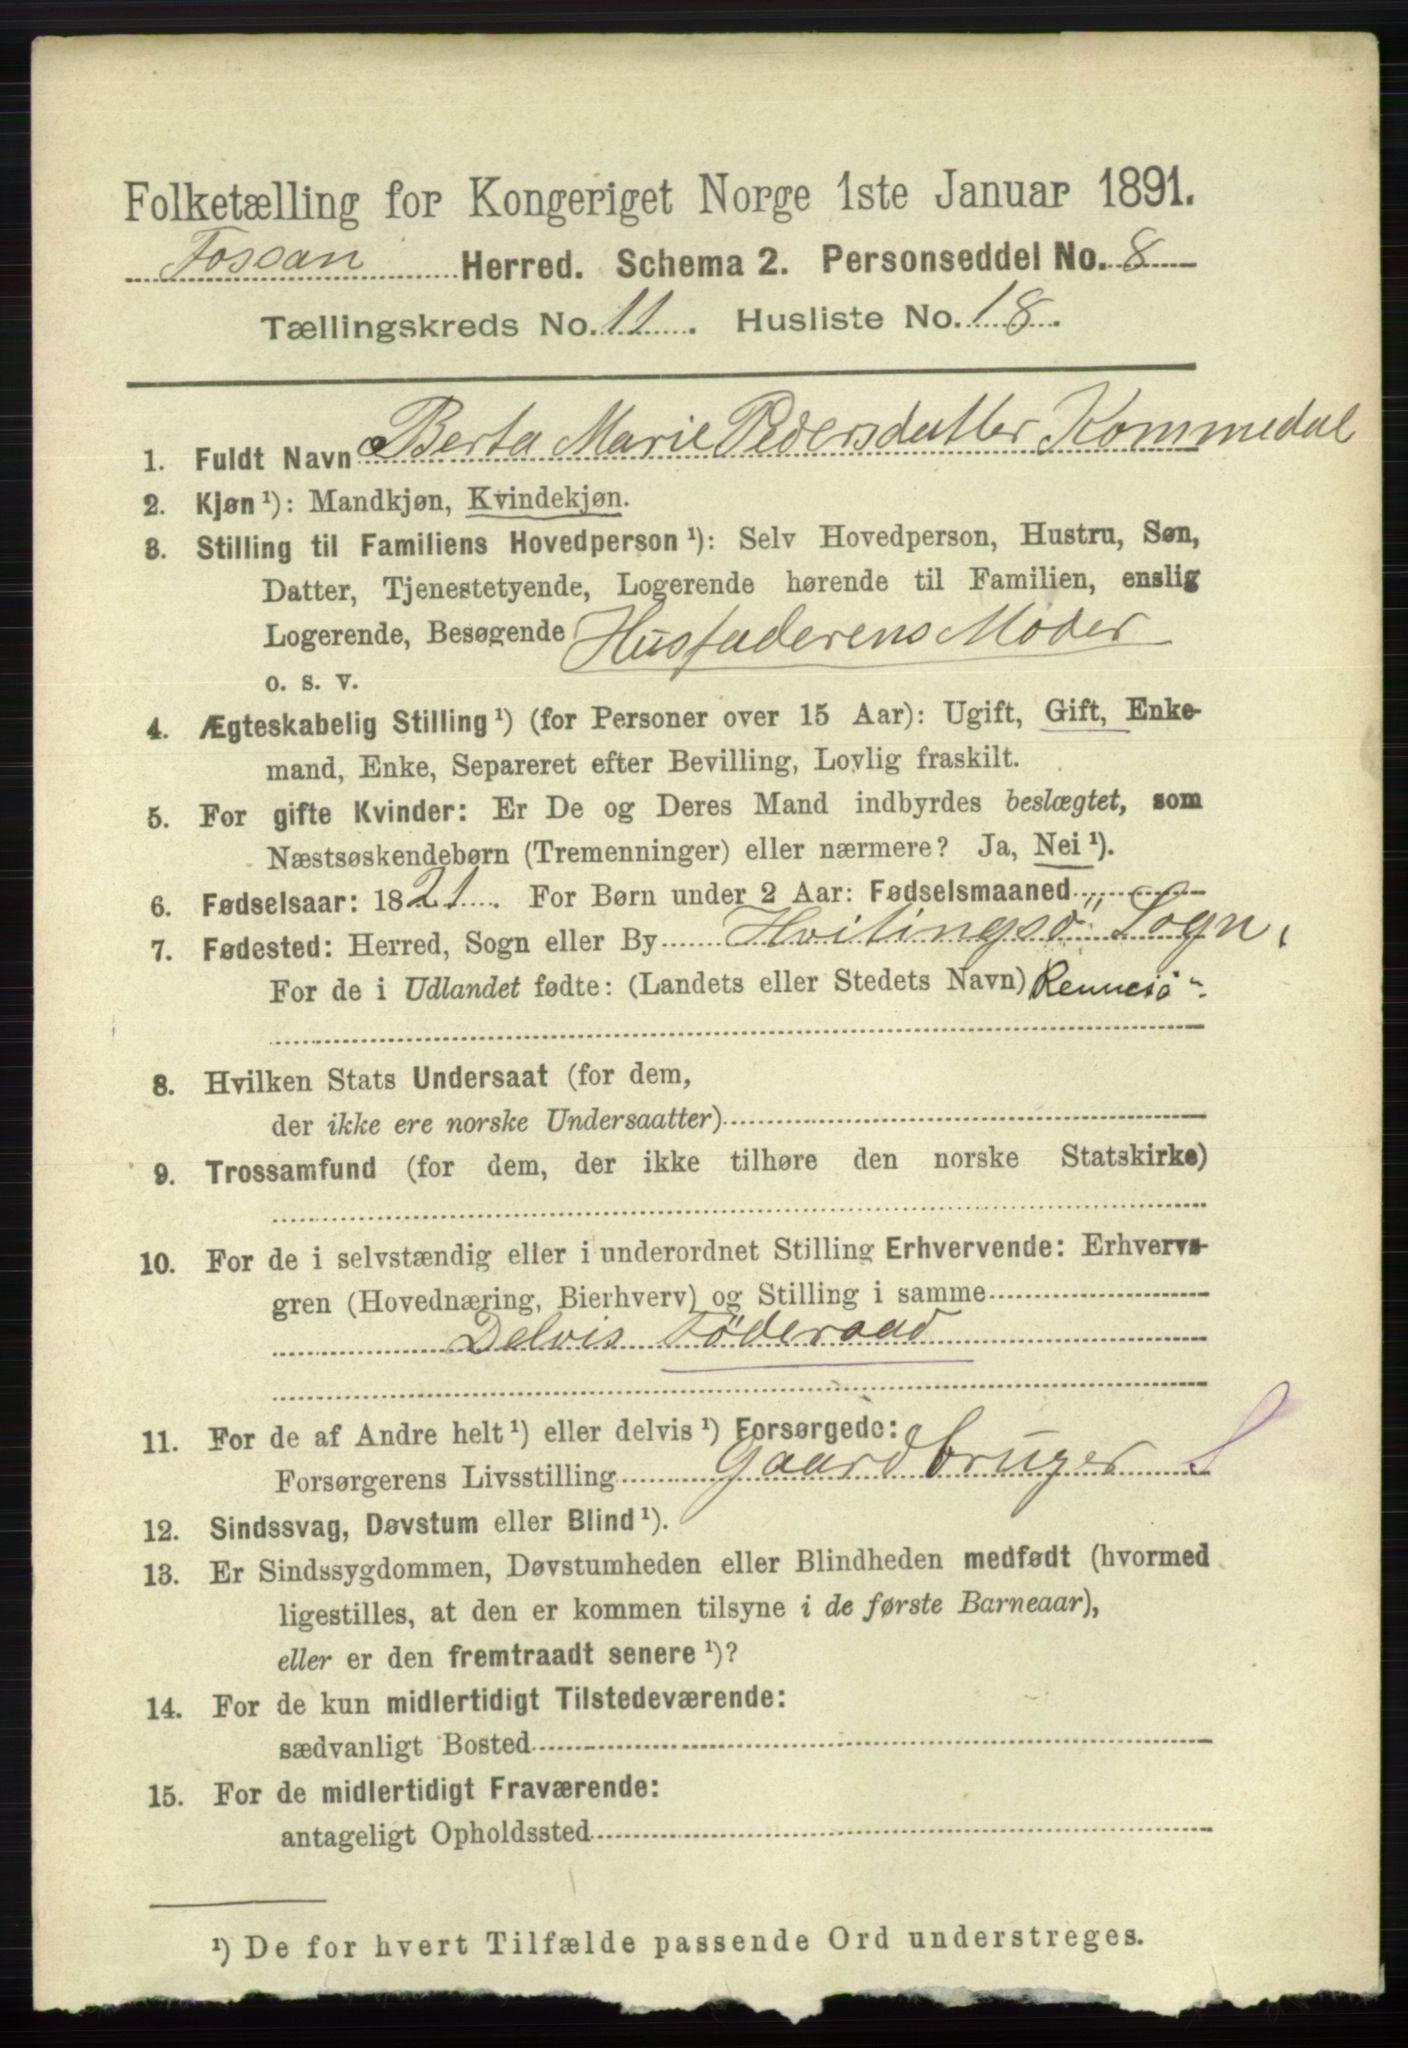 Folketælling for Kongeriget Norge 1ste Januar 1891.
Fossan Herred. Schema 2. Personseddel No. 8
Tællingskreds No. 11. Husliste No. 18.
1. Fuldt Navn Berta Marie Pedersdatter Kommedal
2. Kjøn ¹): Mandkjøn, Kvindekjøn.
3. Stilling til Familiens Hovedperson ¹): Selv Hovedperson, Hustru, Søn,
Datter, Tjenestetyende, Logerende hørende til Familien, enslig
Logerende, Besøgende Husfaderens Moder
o. s. v.
4. Ægteskabelig Stilling ¹) (for Personer over 15 Aar): Ugift, Gift, Enke-
mand, Enke, Separeret efter Bevilling, Lovlig fraskilt.
5. For gifte Kvinder: Er De og Deres Mand indbyrdes beslægtet, som
Næstsøskendebørn (Tremenninger) eller nærmere? Ja, Nei ¹).
6. Fødselsaar: 1821. For Børn under 2 Aar: Fødselsmaaned „
7. Fødested: Herred, Sogn eller By Hvitingsö Sogn,
For de i Udlandet fødte: (Landets eller Stedets Navn) Rennesö
8. Hvilken Stats Undersaat (for dem,
der ikke ere norske Undersaatter)
9. Trossamfund (for dem, der ikke tilhøre den norske Statskirke)
10. For de i selvstændig eller i underordnet Stilling Erhvervende: Erhvervs-
gren (Hovednæring, Bierhverv) og Stilling i samme
Delvis Föderaad
11. For de af Andre helt ¹) eller delvis ¹) Forsørgede:
Forsørgerens Livsstilling Gaardbruger S
12. Sindssvag, Døvstum eller Blind ¹).
13. Er Sindssygdommen, Døvstumheden eller Blindheden medfødt (hvormed
ligestilles, at den er kommen tilsyne i de første Barneaar),
eller er den fremtraadt senere ¹)?
14. For de kun midlertidigt Tilstedeværende:
sædvanligt Bosted
15. For de midlertidigt Fraværende:
antageligt Opholdssted
¹) De for hvert Tilfælde passende Ord understreges.